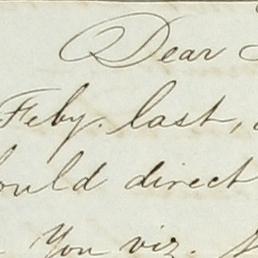 Dear
Feby. last,
ould direct
You viz.